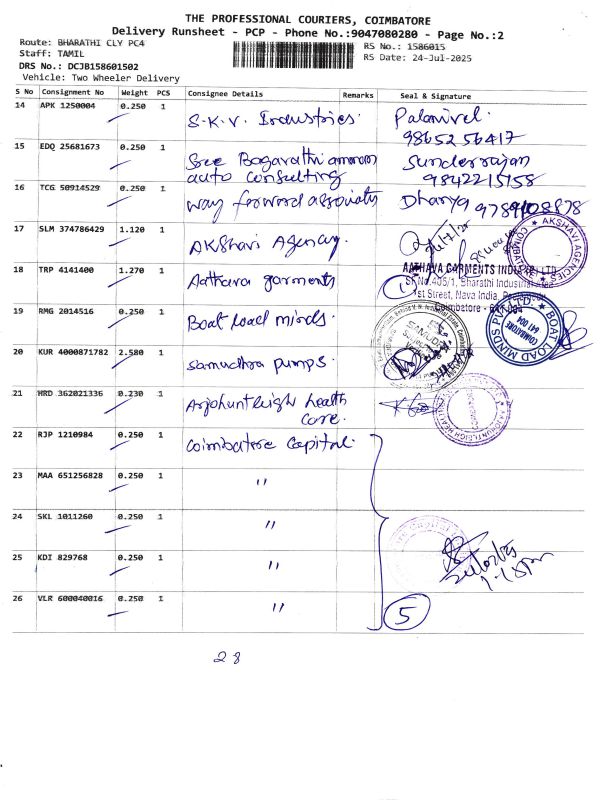 THE PROFESSIONAL COURIERS, COIMBATORE
Delivery Runsheet - PCP - Phone No.:9047080280 - Page No.:2
Route: BHARATHI CLY PC4
RS No.: 1586015
Staff: TAMIL
RS Date: 24-Jul-2025
DRS No.: DCJB158601502
Vehicle: Two Wheeler Delivery
S No Consignment No Weight PCS Consignee Details Remarks Seal & Signature
14 APK 1250004 0.250 1 S.K.V. Industries. Palanivel.
9865256417
15 EDQ 25681673 0.250 1 Sree Bagavathi amman Sunderrajan
auto consulting 9842215758
16 TCG 50914529 0.250 1 way forward associats Dharya
17 SLM 374786429 1.120 1 Akshavi Agency.
AKSHAVI AGENCIES
COIMBATORE
18 TRP 4141400 1.270 1 Aathava garments
AATHAVA GARMENTS INDIA (P) LTD
SF.No.405/1, Bharathi Industrial
1st Street, Nava India,
Coimbatore - 641 004
19 RMG 2014516 0.250 1 Boat load minds.
BOAT LOAD MINDS PVT LTD
COIMBATORE
641 004
20 KUR 4000871782 2.580 1 Samudhra pumps.
21 HRD 362021336 0.230 1 Arjohuntleigh health
care.
22 RJP 1210984 0.250 1 Coimbatore Capital.
23 MAA 651256828 0.250 1 "
24 SKL 1011260 0.250 1 "
25 KDI 829768 0.250 1 "
26 VLR 600040016 0.250 1 "
5
28